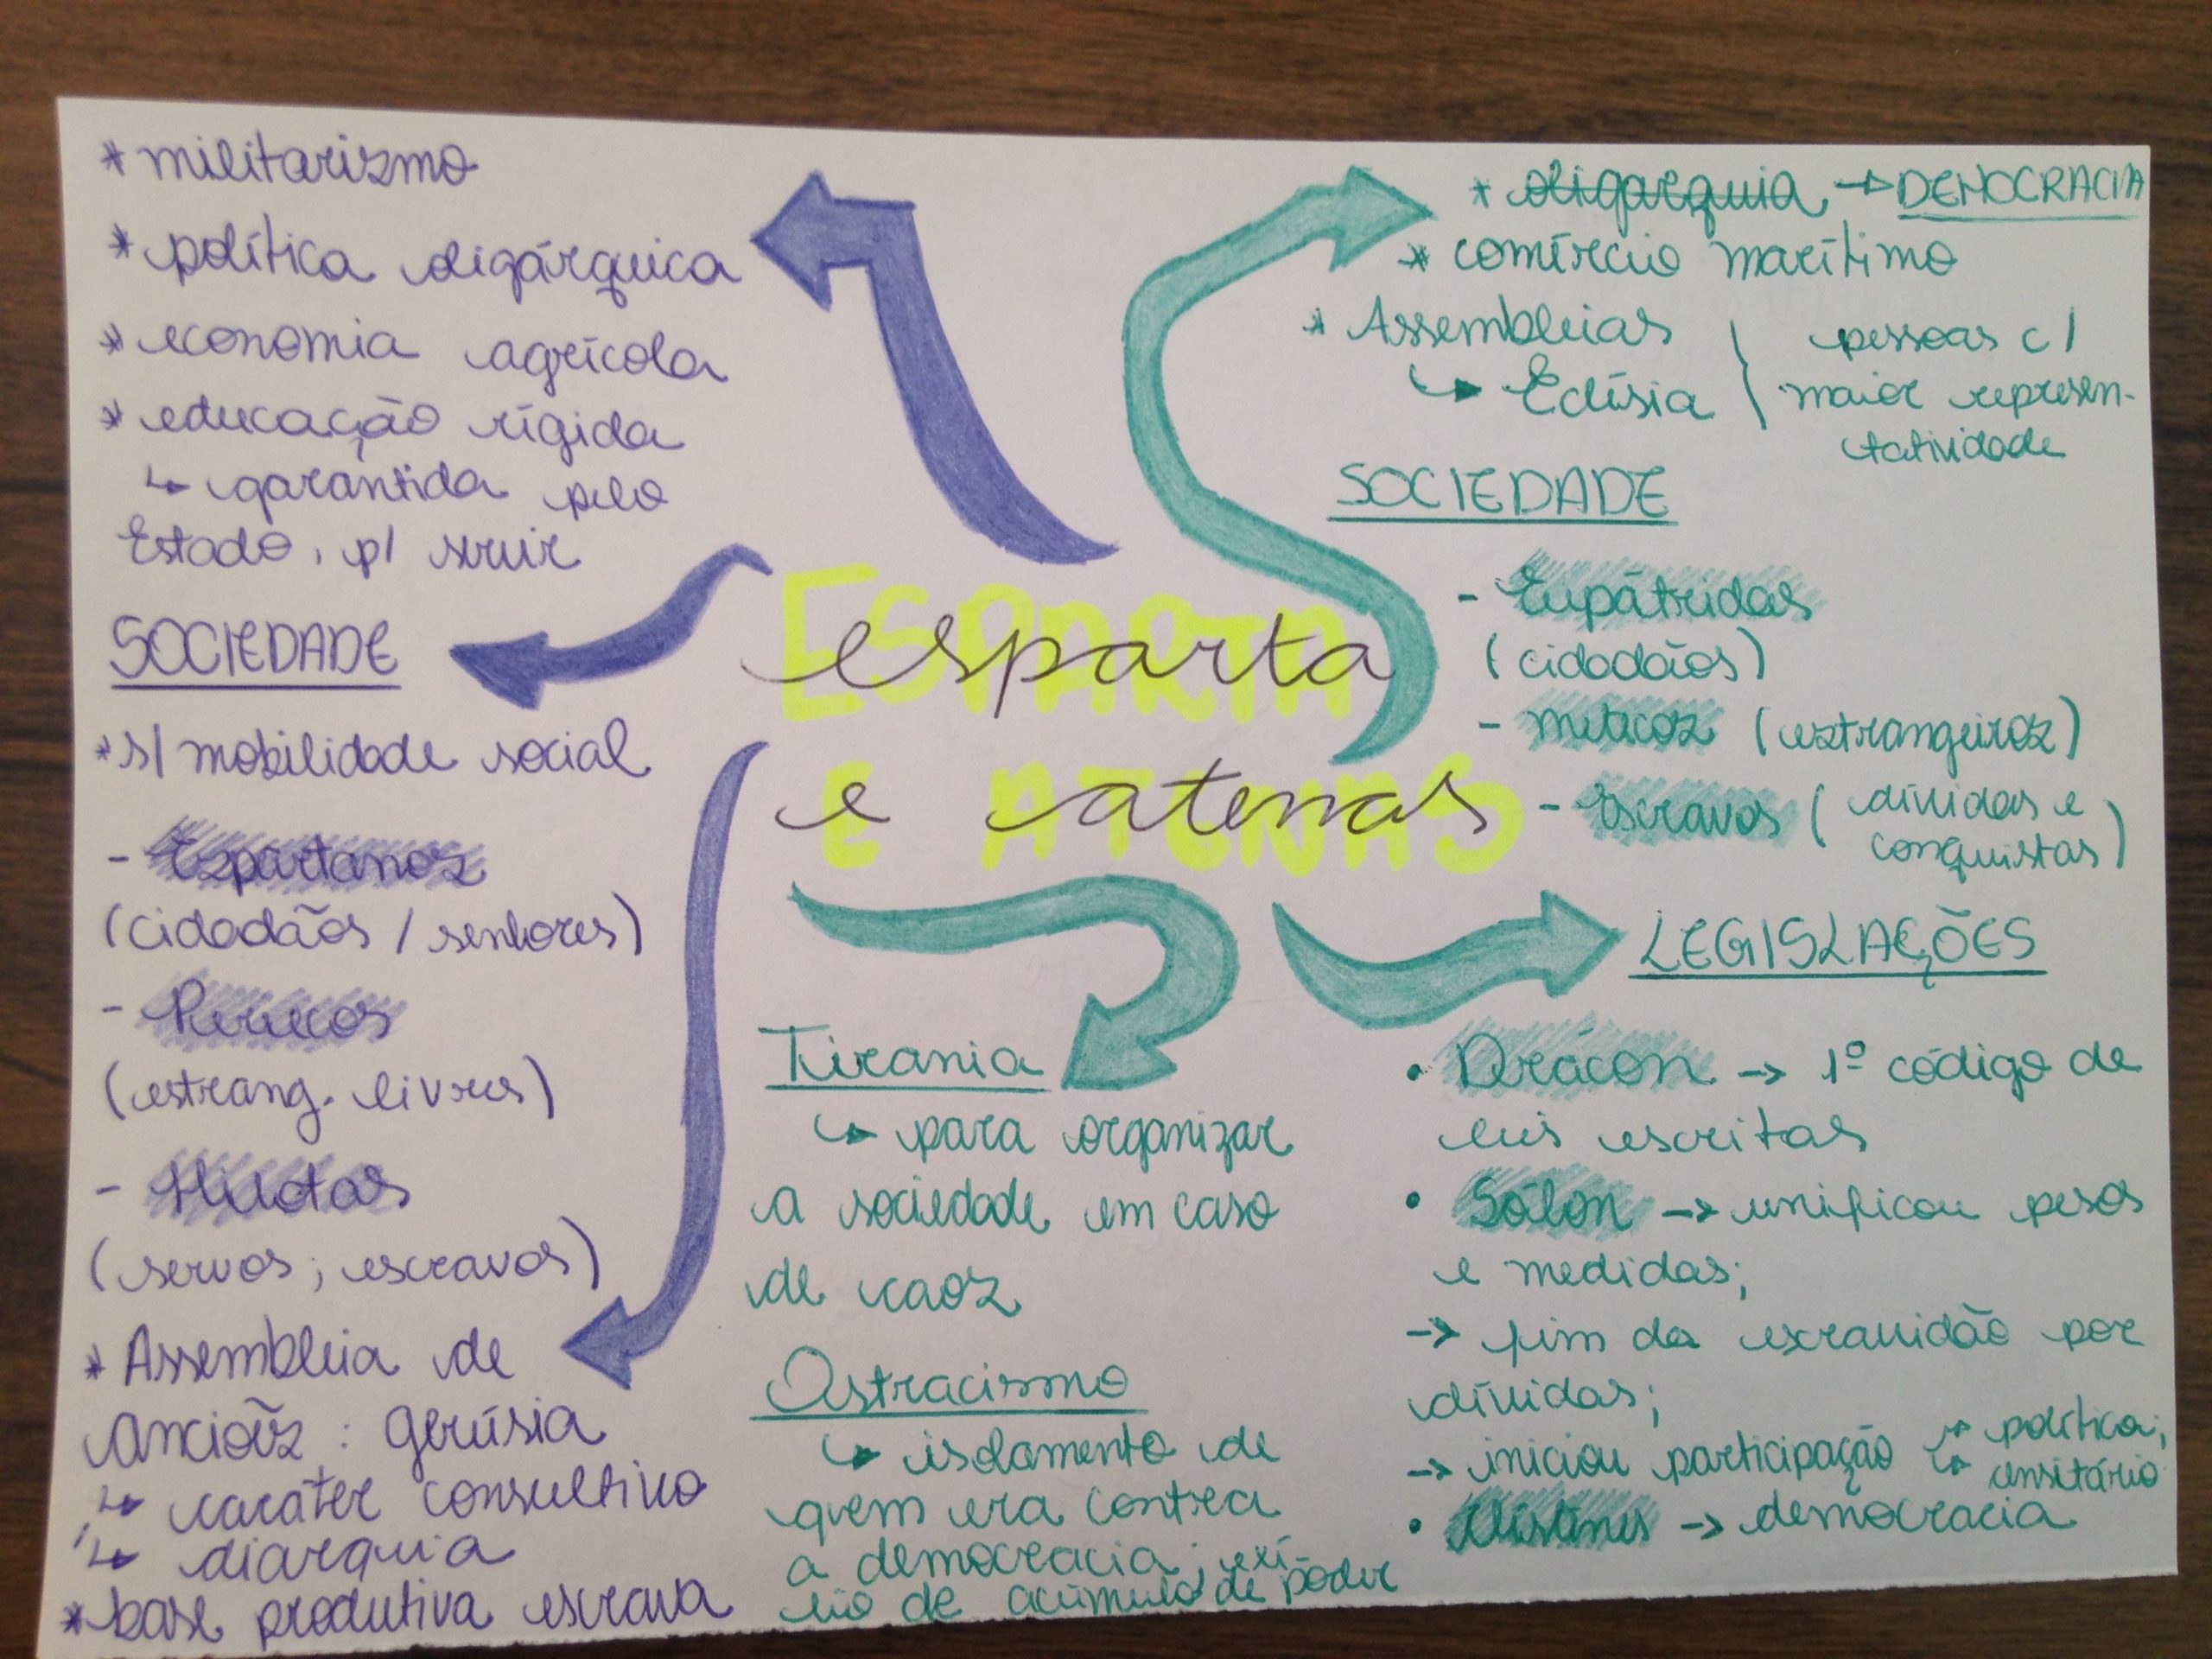 * militarismo
* política oligárquica
* economia agrícola
* educação rígida
↳ garantida pelo
Estado, p/ servir
SOCIEDADE
* s/ mobilidade social
- Espartanos
(cidadãos / senhores)
- Periecos
(estrang. livres)
- Hilotas
(servos; escravos)
* Assembleia de
anciões : gerúsia
↳ caráter consultivo
↳ diarquia
* base produtiva escrava
ESPARTA
E ATENAS
esparta
e atenas
Tirania
↳ para organizar
a sociedade em caso
de caos
Ostracismo
↳ isolamento de
quem era contra
a democracia; exí-
lio de acúmulo de poder
* oligarquia → DEMOCRACIA
* comércio marítimo
* Assembleias
↳ Eclésia
pessoas c/
maior represen-
tatividade
SOCIEDADE
- Eupátridas
(cidadãos)
- Metecos (estrangeiros)
- Escravos (dívidas e
conquistas)
LEGISLAÇÕES
• Drácon → 1º código de
leis escritas
• Sólon → unificou pesos
e medidas;
→ fim da escravidão por
dívidas;
→ iniciou participação → política;
→ censitário
• Clístenes → democracia